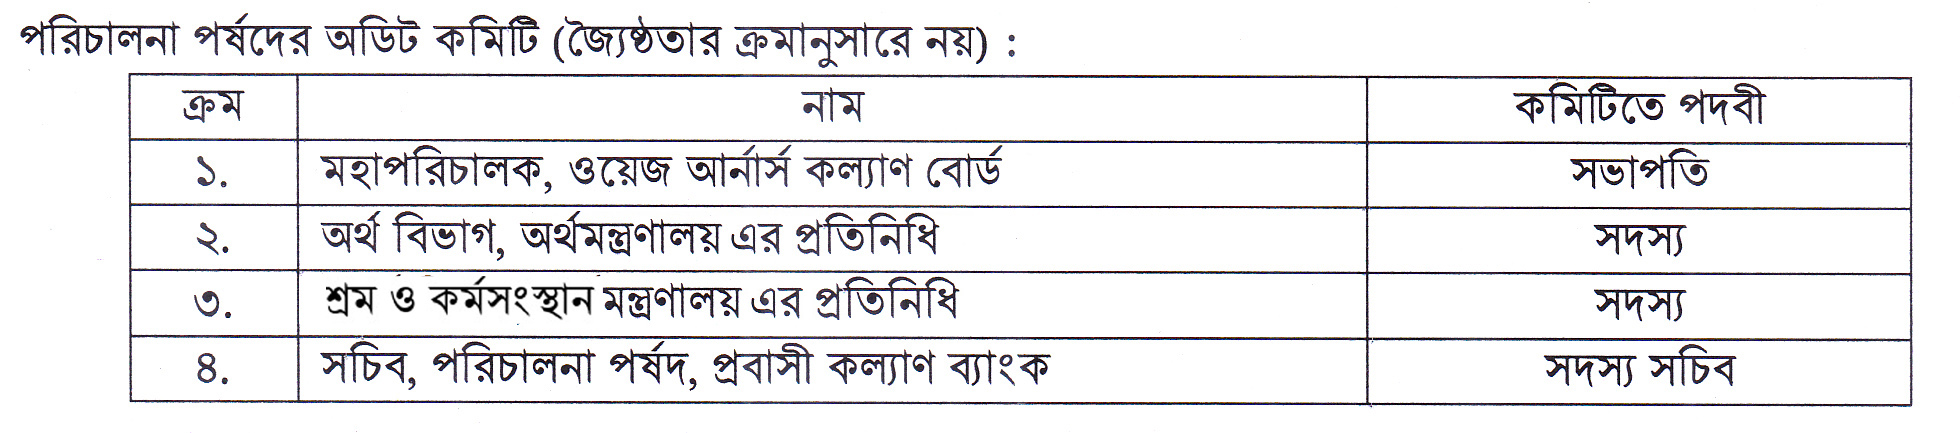 পরিচালনা পর্ষদের অডিট কমিটি (জ্যৈষ্ঠতার ক্রমানুসারে নয়) :
ক্রম নাম কমিটিতে পদবী
১. মহাপরিচালক, ওয়েজ আর্নার্স কল্যাণ বোর্ড সভাপতি
২. অর্থ বিভাগ, অর্থমন্ত্রণালয় এর প্রতিনিধি সদস্য
৩. শ্রম ও কর্মসংস্থান মন্ত্রণালয় এর প্রতিনিধি সদস্য
৪. সচিব, পরিচালনা পর্ষদ, প্রবাসী কল্যাণ ব্যাংক সদস্য সচিব